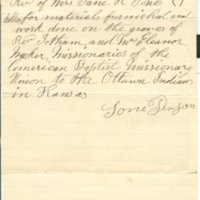 Rev of Mrs Jane K. Jones
for materials furnished and
work done on the graves of
Rev Jotham and Mrs Eleanor
Meeker, missionaries of the
American Baptist Missionary
Union to the Ottawa Indians
in Kansas